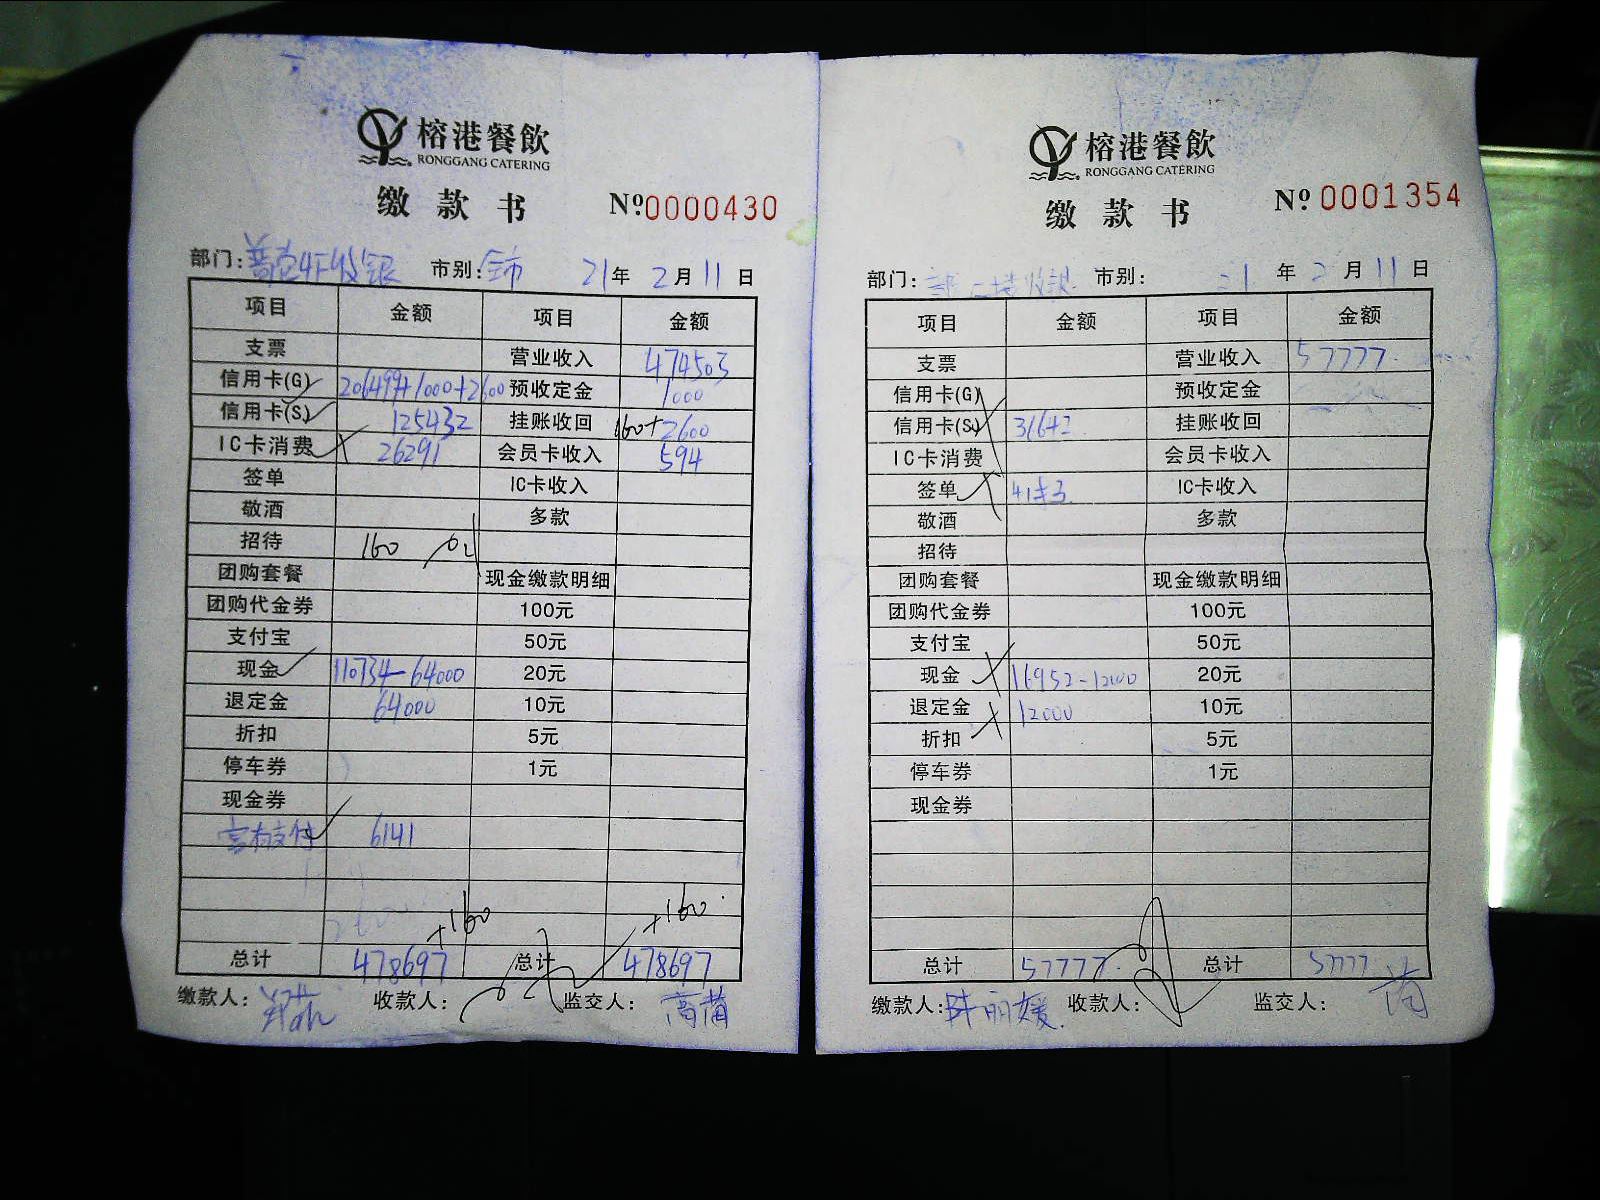 榕港餐飲
RONGGANG CATERING
缴款书 №0000430
部门: 4F收银 市别:全市 21年2月11日
项目 金额 项目 金额
支票 营业收入 474503
信用卡(G) 206499+1000+2600 预收定金 1000
信用卡(S) 125432 挂账收回 160+2600
IC卡消费 26291 会员卡收入 594
签单 IC卡收入
敬酒 多款
招待 160
团购套餐 现金缴款明细
团购代金券 100元
支付宝 50元
现金 110734-64000 20元
退定金 64000 10元
折扣 5元
停车券 1元
现金券
支付 6141
+160 +160
总计 478697 总计 478697
缴款人: 收款人: 监交人:
榕港餐飲
RONGGANG CATERING
缴款书 №0001354
部门: 市别: 21年2月11日
项目 金额 项目 金额
支票 营业收入 57777
信用卡(G) 预收定金
信用卡(S) 31642 挂账收回
IC卡消费 会员卡收入
签单 IC卡收入
敬酒 多款
招待
团购套餐 现金缴款明细
团购代金券 100元
支付宝 50元
现金 16952-12000 20元
退定金 12000 10元
折扣 5元
停车券 1元
现金券
总计 57777 总计 57777
缴款人: 丽媛 收款人: 监交人: